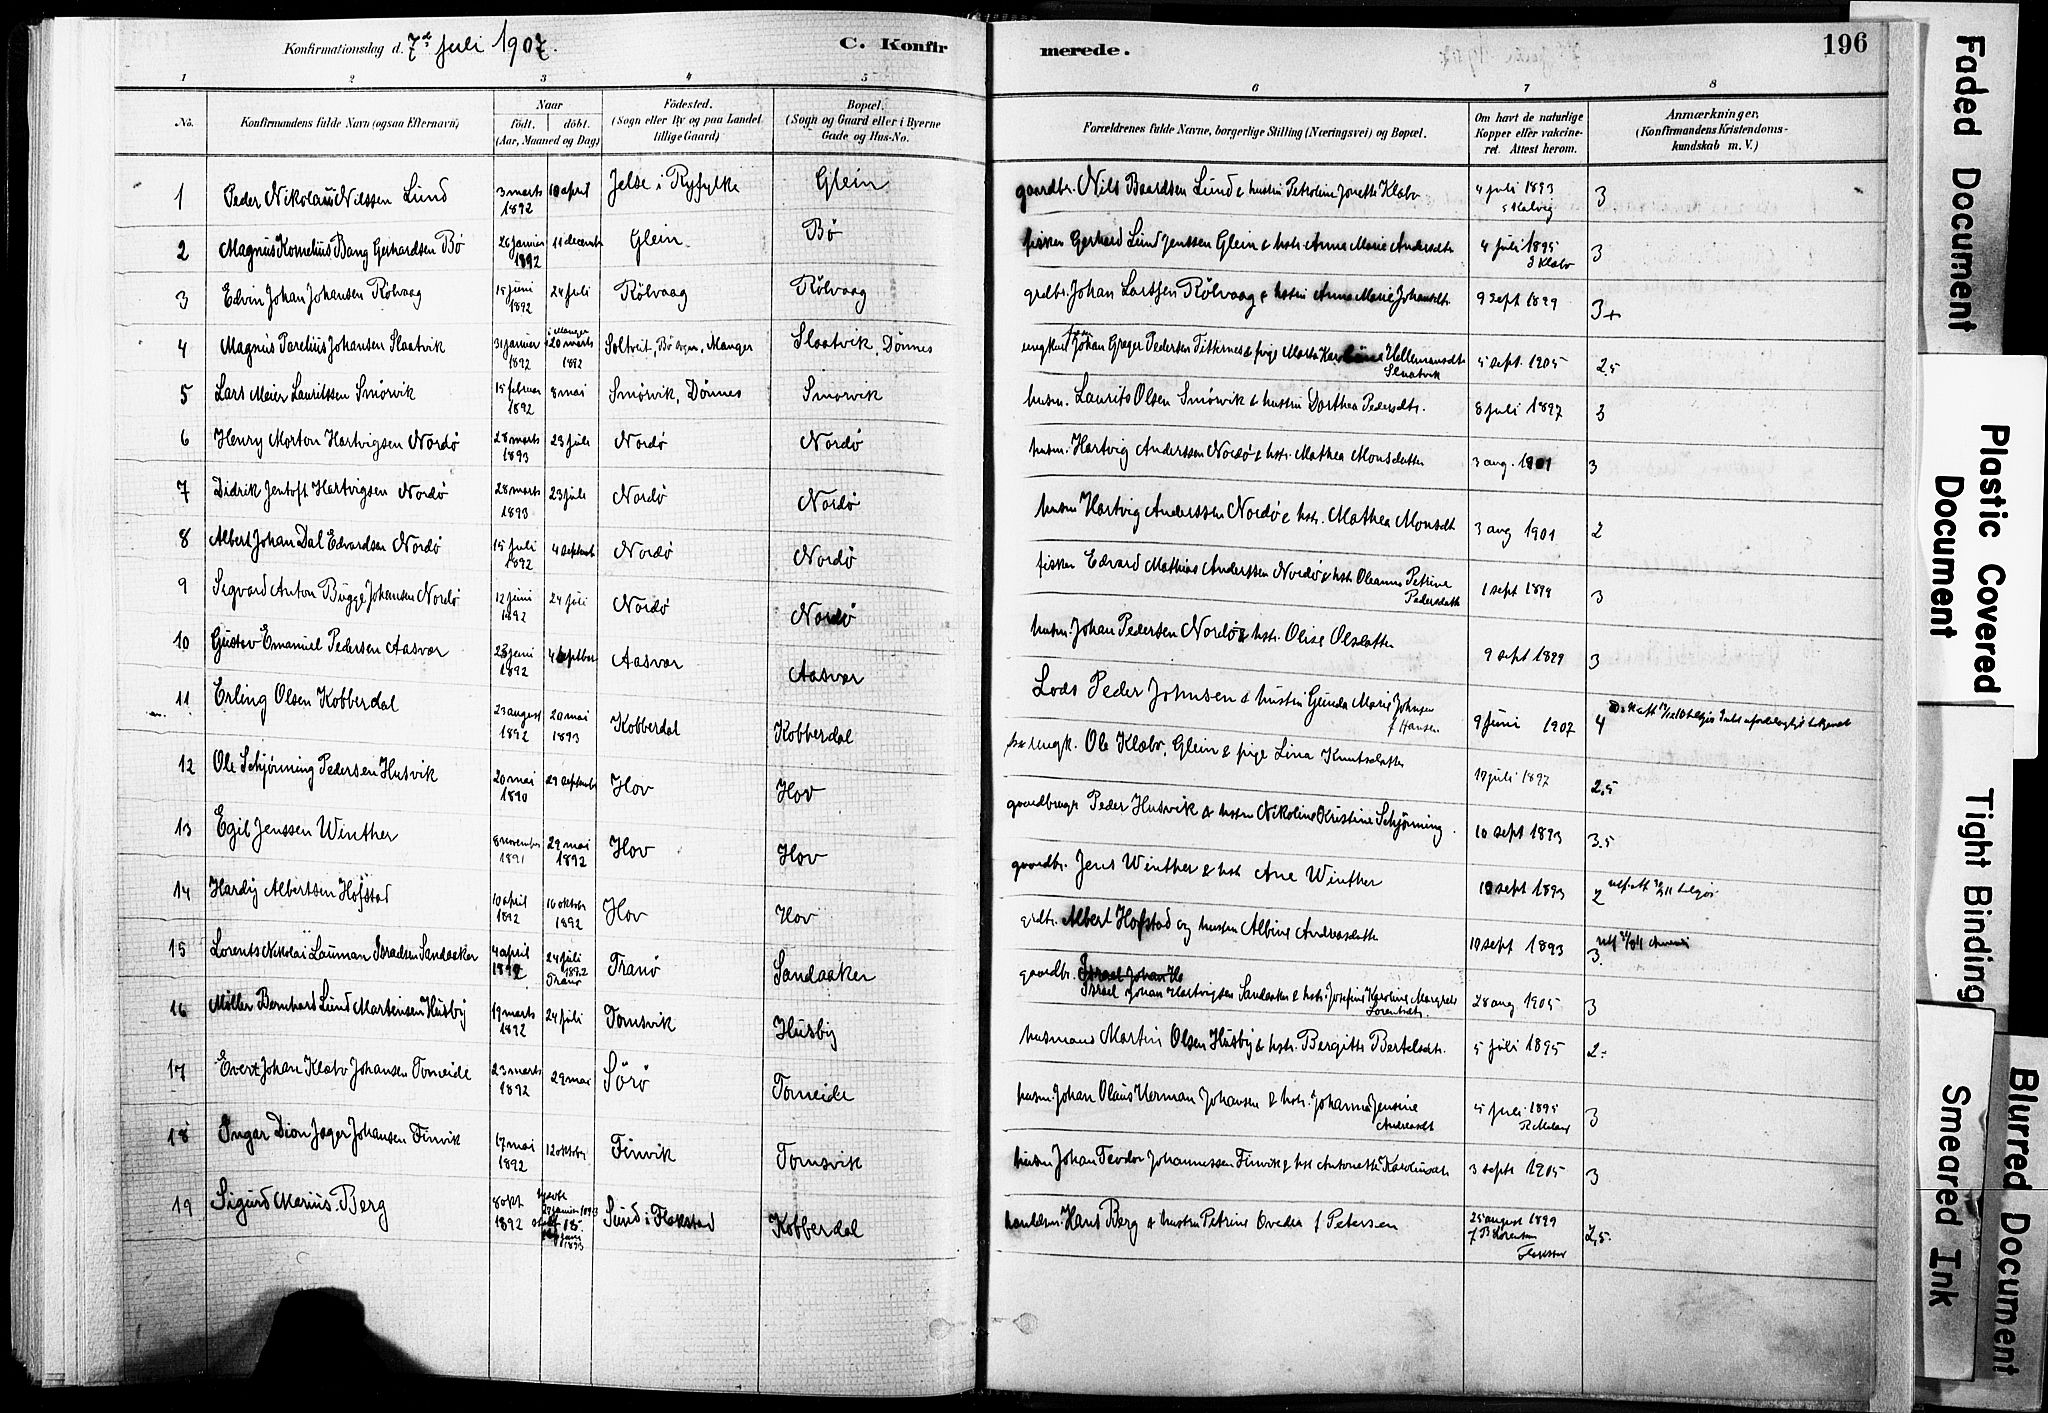 Konfirmationsdag d. 7de juli 1907.
C. Konfirmerede.
196
1 2 3 4 5 6 7 8
No.
Konfirmandens fulde Navn (ogsaa Efternavn)
Naar
födt. döbt.
(Aar, Maaned og Dag)
Födested.
(Sogn eller By og paa Landet
tillige Gaard)
Bopæl.
(Sogn og Gaard eller i Byerne
Gade og Hus-No.
Forældrenes fulde Navne, borgerlige Stilling (Næringsvei) og Bopæl.
Om havt de naturlige
Kopper eller vakcine-
ret. Attest herom.
Anmærkninger.
(Konfirmandens Kristendoms-
kundskab m. V.)
1 Peder Nikolaus Nilssen Lund 3 marts 1892 10 april Jelse i Ryfylke Glein gaardbr. Nils Baardsen Lund & hustru Petroline Jonette Klæbo 4 juli 1893 3
2 Magnus Kornelius Bang Gerhardsen Bø 26 januar 1892 11 decembr Glein Bø fisker Gerhard Lund Jenssen Glein & hstr. Anna Marie Andersdtr 4 juli 1895 Klæbo 3
3 Edvin Johan Johansen Rølvaag 15 juni 1892 24 juli Rølvaag Rølvaag grdbr. Johan Larssen Rølvaag & hstru Anna Marie Johansdtr. 9 sept 1899 3+
4 Magnus Parelius Johansen Slaatvik 31 januar 1892 i Manger 20 marts 1892 Soltveit, Bø sogn, Manger Slaatvik, Dønnes ungkarl Johan Grager Pedersen & pige Marta Karoline Slaatvik 5 sept. 1905 2.5
5 Lars Meier Lauritssen Smørvik 15 februar 1892 8 mai Smørvik, Dønnes Smørvik husm. Laurits Olsen Smørvik & hustru Dorthea Pedersdtr. 8 juli 1897 3
6 Henry Morton Hartvigsen Nordø 28 marts 1893 23 juli Nordø Nordø husm. Hartvig Anderssen Nordø & hstr. Mathea Monsdatter 3 aug. 1901 3
7 Didrik Jentoft Hartvigsen Nordø 28 marts 1893 23 juli Nordø Nordø husm Hartvig Anderssen Nordø & hstr. Mathea Monsdtr 3 aug 1901 2
8 Albert Johan Dal Edvardsen Nordø 15 juli 1892 4 septembr Nordø Nordø fisker Edvard Mathias Anderssen Nordø & hstr. Oleanna Petrine Pedersdatter 1 sept 1899 3
9 Segvard Anton Bugge Johansen Nordø 12 juni 1892 24 juli Nordø Nordø husm. Johan Pedersen Nordø & hstr. Olise Olsdatter 9 sept 1899 3
10 Gustav Emanuel Pedersen Aasvær 23 juni 1892 4 septber Aasvær Aasvær Lods Peder Johnsen & hustru Gunda Marie Johnsen f Hansen 9 juni 1907 4
11 Erling Olsen Kobberdal 23 august 1892 20 mai 1893 Kobberdal Kobberdal ungk. Ole Klæbo, Glein & pige Lina Knutsdatter 17 juli 1897 2,5
12 Ole Schjønning Pedersen Husvik 20 mai 1890 29 septembr Hov Hov gaardbruger Peder Husvik & hstru Nikoline Kristine Schjønning 10 sept 1893 3.5
13 Egil Jenssen Winther 8 november 1891 29 mai 1892 Hov Hov gaardbr. Jens Winther & hstr Ane Winther 10 sept 1893 2
14 Hardy Albertsen Hofstad 10 april 1892 16 oktober 1892 Hov Hov grdbr. Albert Hofstad og hustru Albine Andreasdatter 10 sept 1893 3.
15 Lorents Nikolai Lauman Israelsen Sandaaker 4 april 1892 24 juli 1892 Tranø Tranø Sandaaker gaardbr. Israel Johan Hartvigsen Sandaaker & hstr. Josefine Karoline Margrete Lorentsdtr. 28 aug 1905 3
16 Møller Bernhard Lund Martensen Husby 19 marts 1892 24 juli Tomsvik Husby husmand Martin Olsen Husby & hstr. Bergitte Bertelsdtr. 5 juli 1895 2-
17 Evert Johan Klæbo Johansen Tomeide 23 marts 1892 29 mai Sørø Tomeide husm. Johan Olaus Herman Johansen & hstr. Johanna Jensine Andreasdt 5 juli 1895 3
18 Ingar Dion Jager Johansen Finvik 17 mai 1892 12 oktober Finvik Tomsvik husm Johan Teodor Johannessen Finvik & hst Antonette Karoliusdtr 3 sept 1905 3
19 Sigurd Marius Berg 8 okt 1892 januar 1893 15 juni 1893 Sund i Flakstad Kobberdal handelsm. Hans Berg & hustru Petrine Ovedia f Petersen 25 august 1899 2,5
Faded Document
Plastic Covered Document
Tight Binding
Blurred Document
Smeared Ink